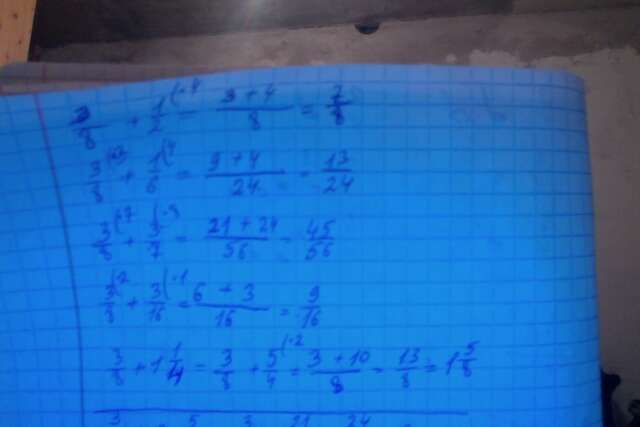 3/8 + 1/2(·4 = 3+4/8 = 7/8
3/8(·3 + 1/6(·4 = 9+4/24 = 13/24
3/8(·7 + 3/7(·8 = 21+24/56 = 45/56
3/8(·2 + 3/16(·1 = 6+3/16 = 9/16
3/8 + 1 1/4 = 3/8 + 5/4(·2 = 3+10/8 = 13/8 = 1 5/8
3 5 3 21 24